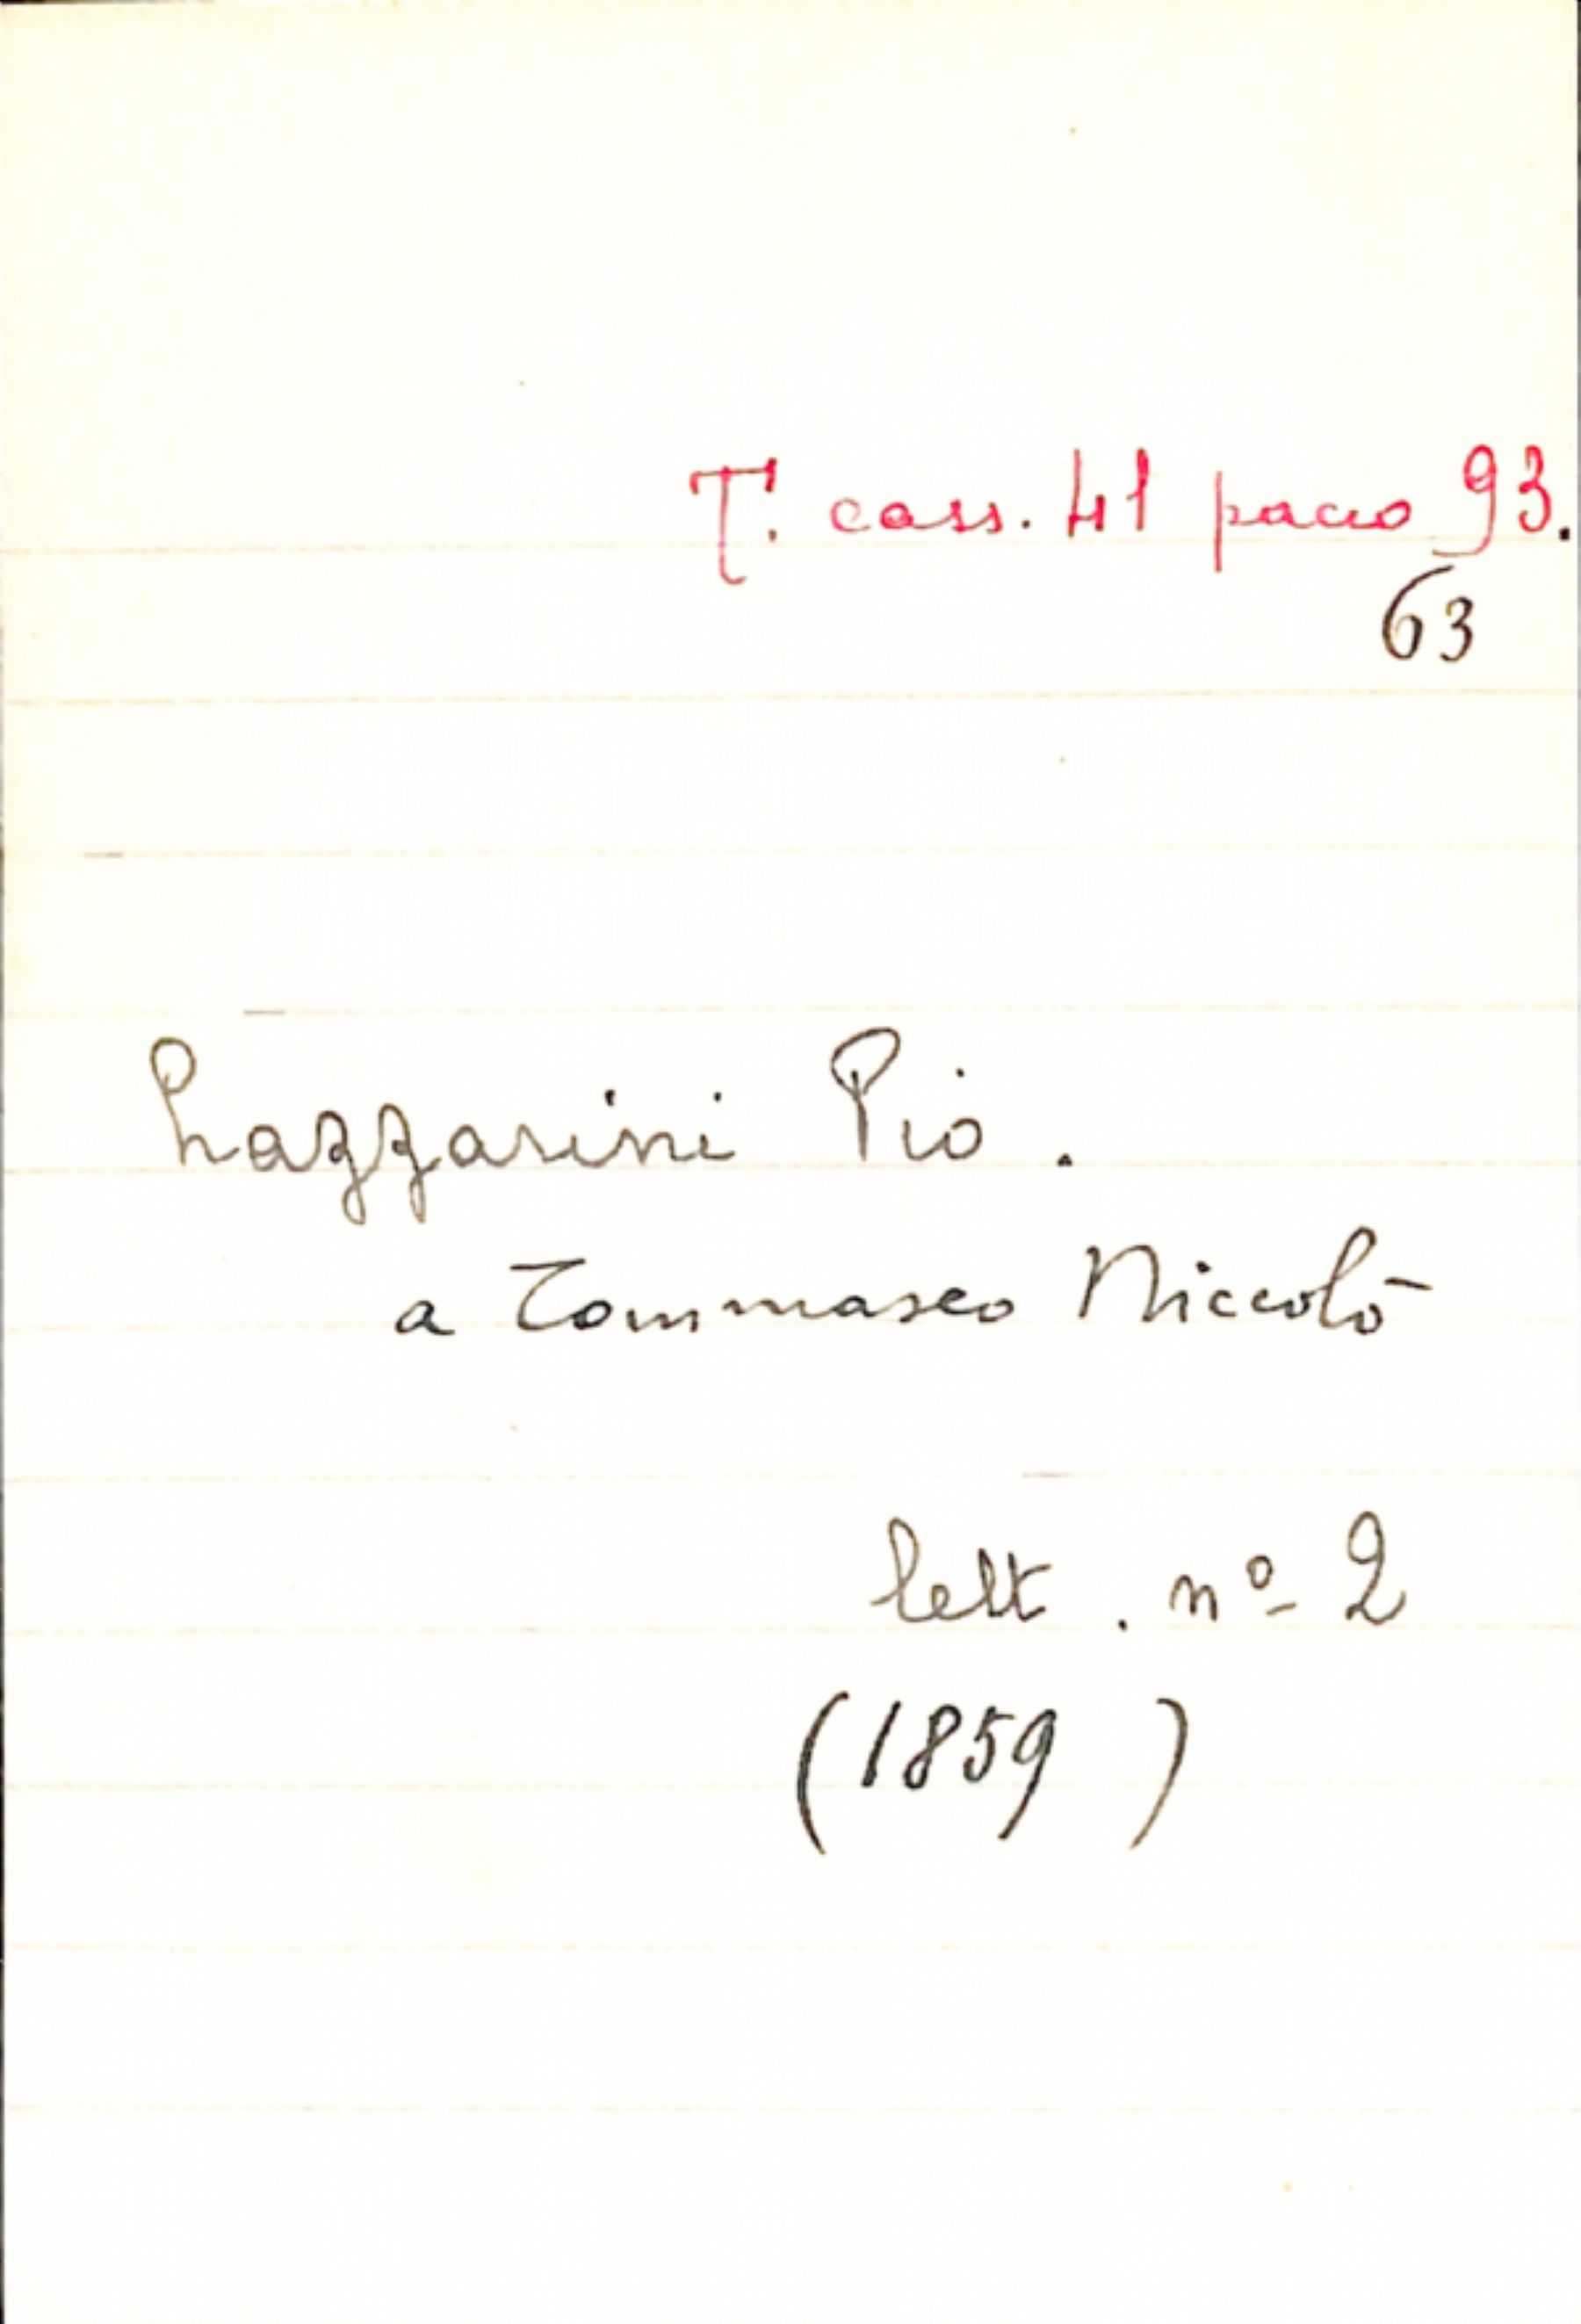 T. cass. 41 pacco 93.
63
Lazzarini Pio.
a Tommaseo Niccolò
lett. nº 2
(1859 )